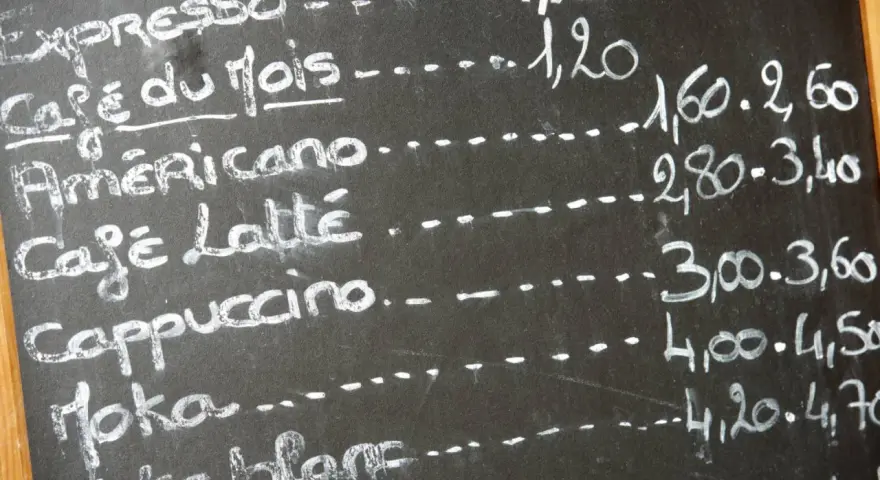 Expresso - -
Café du Mois - - - - - - 1,20
Américano - - - - - - - - - - 1,60 . 2,60
Café Latté - - - - - - - - 2,80 - 3,40
Cappuccino - - - - - - - - 3,00 . 3,60
Moka - - - - - - - - - - 4,00 . 4,50
blanc - - - - - - - - 4,20 . 4,70